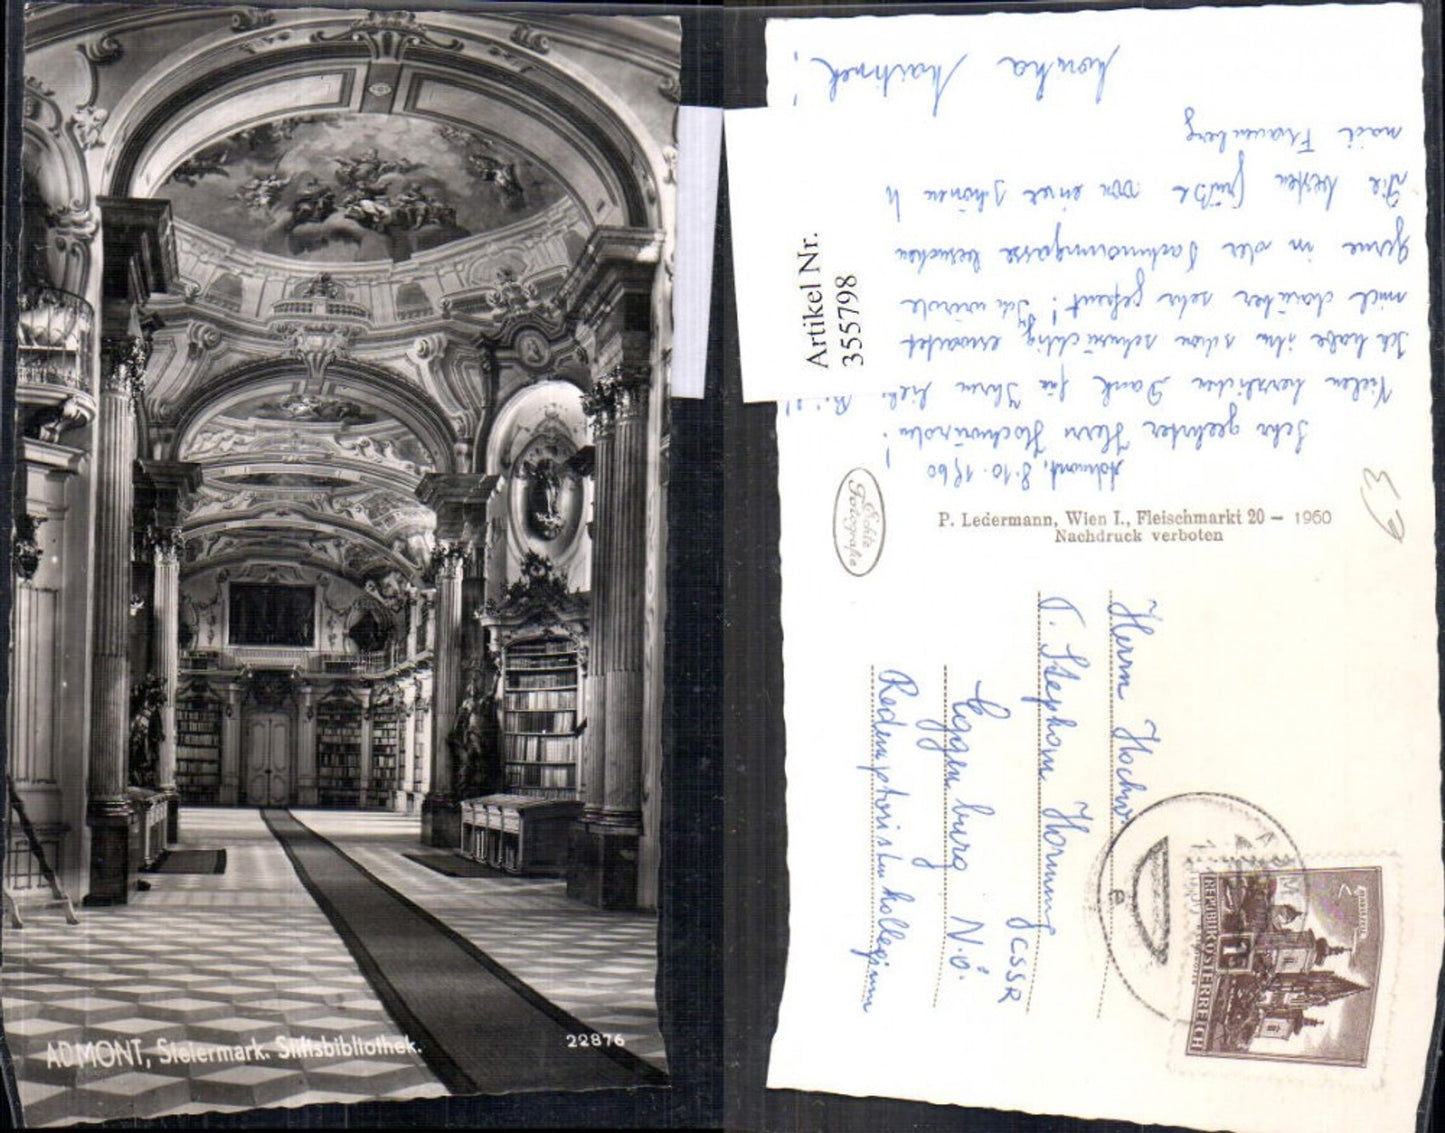 ADMONT, Steiermark. Stiftsbibliothek.
22876
Artikel Nr.
355798
Admont, 8.10.1960
Sehr geehrter Herr Hochwürden!
Vielen herzlichen Dank für Ihren lieb.
Ich habe ihn schon sehnsüchtig erwartet
mich darüber sehr gefreut! Ich würde
gerne in der besuchen
Die besten Grüße von einer schönen
nach Frauenberg
P. Ledermann, Wien I., Fleischmarkt 20 — 1960
Nachdruck verboten
Echte
Fotografie
Herrn Hochw
P. Stephan Hornung
CSSR
Eggenburg N.Ö.
Redemptoristenkollegium
REPUBLIK ÖSTERREICH